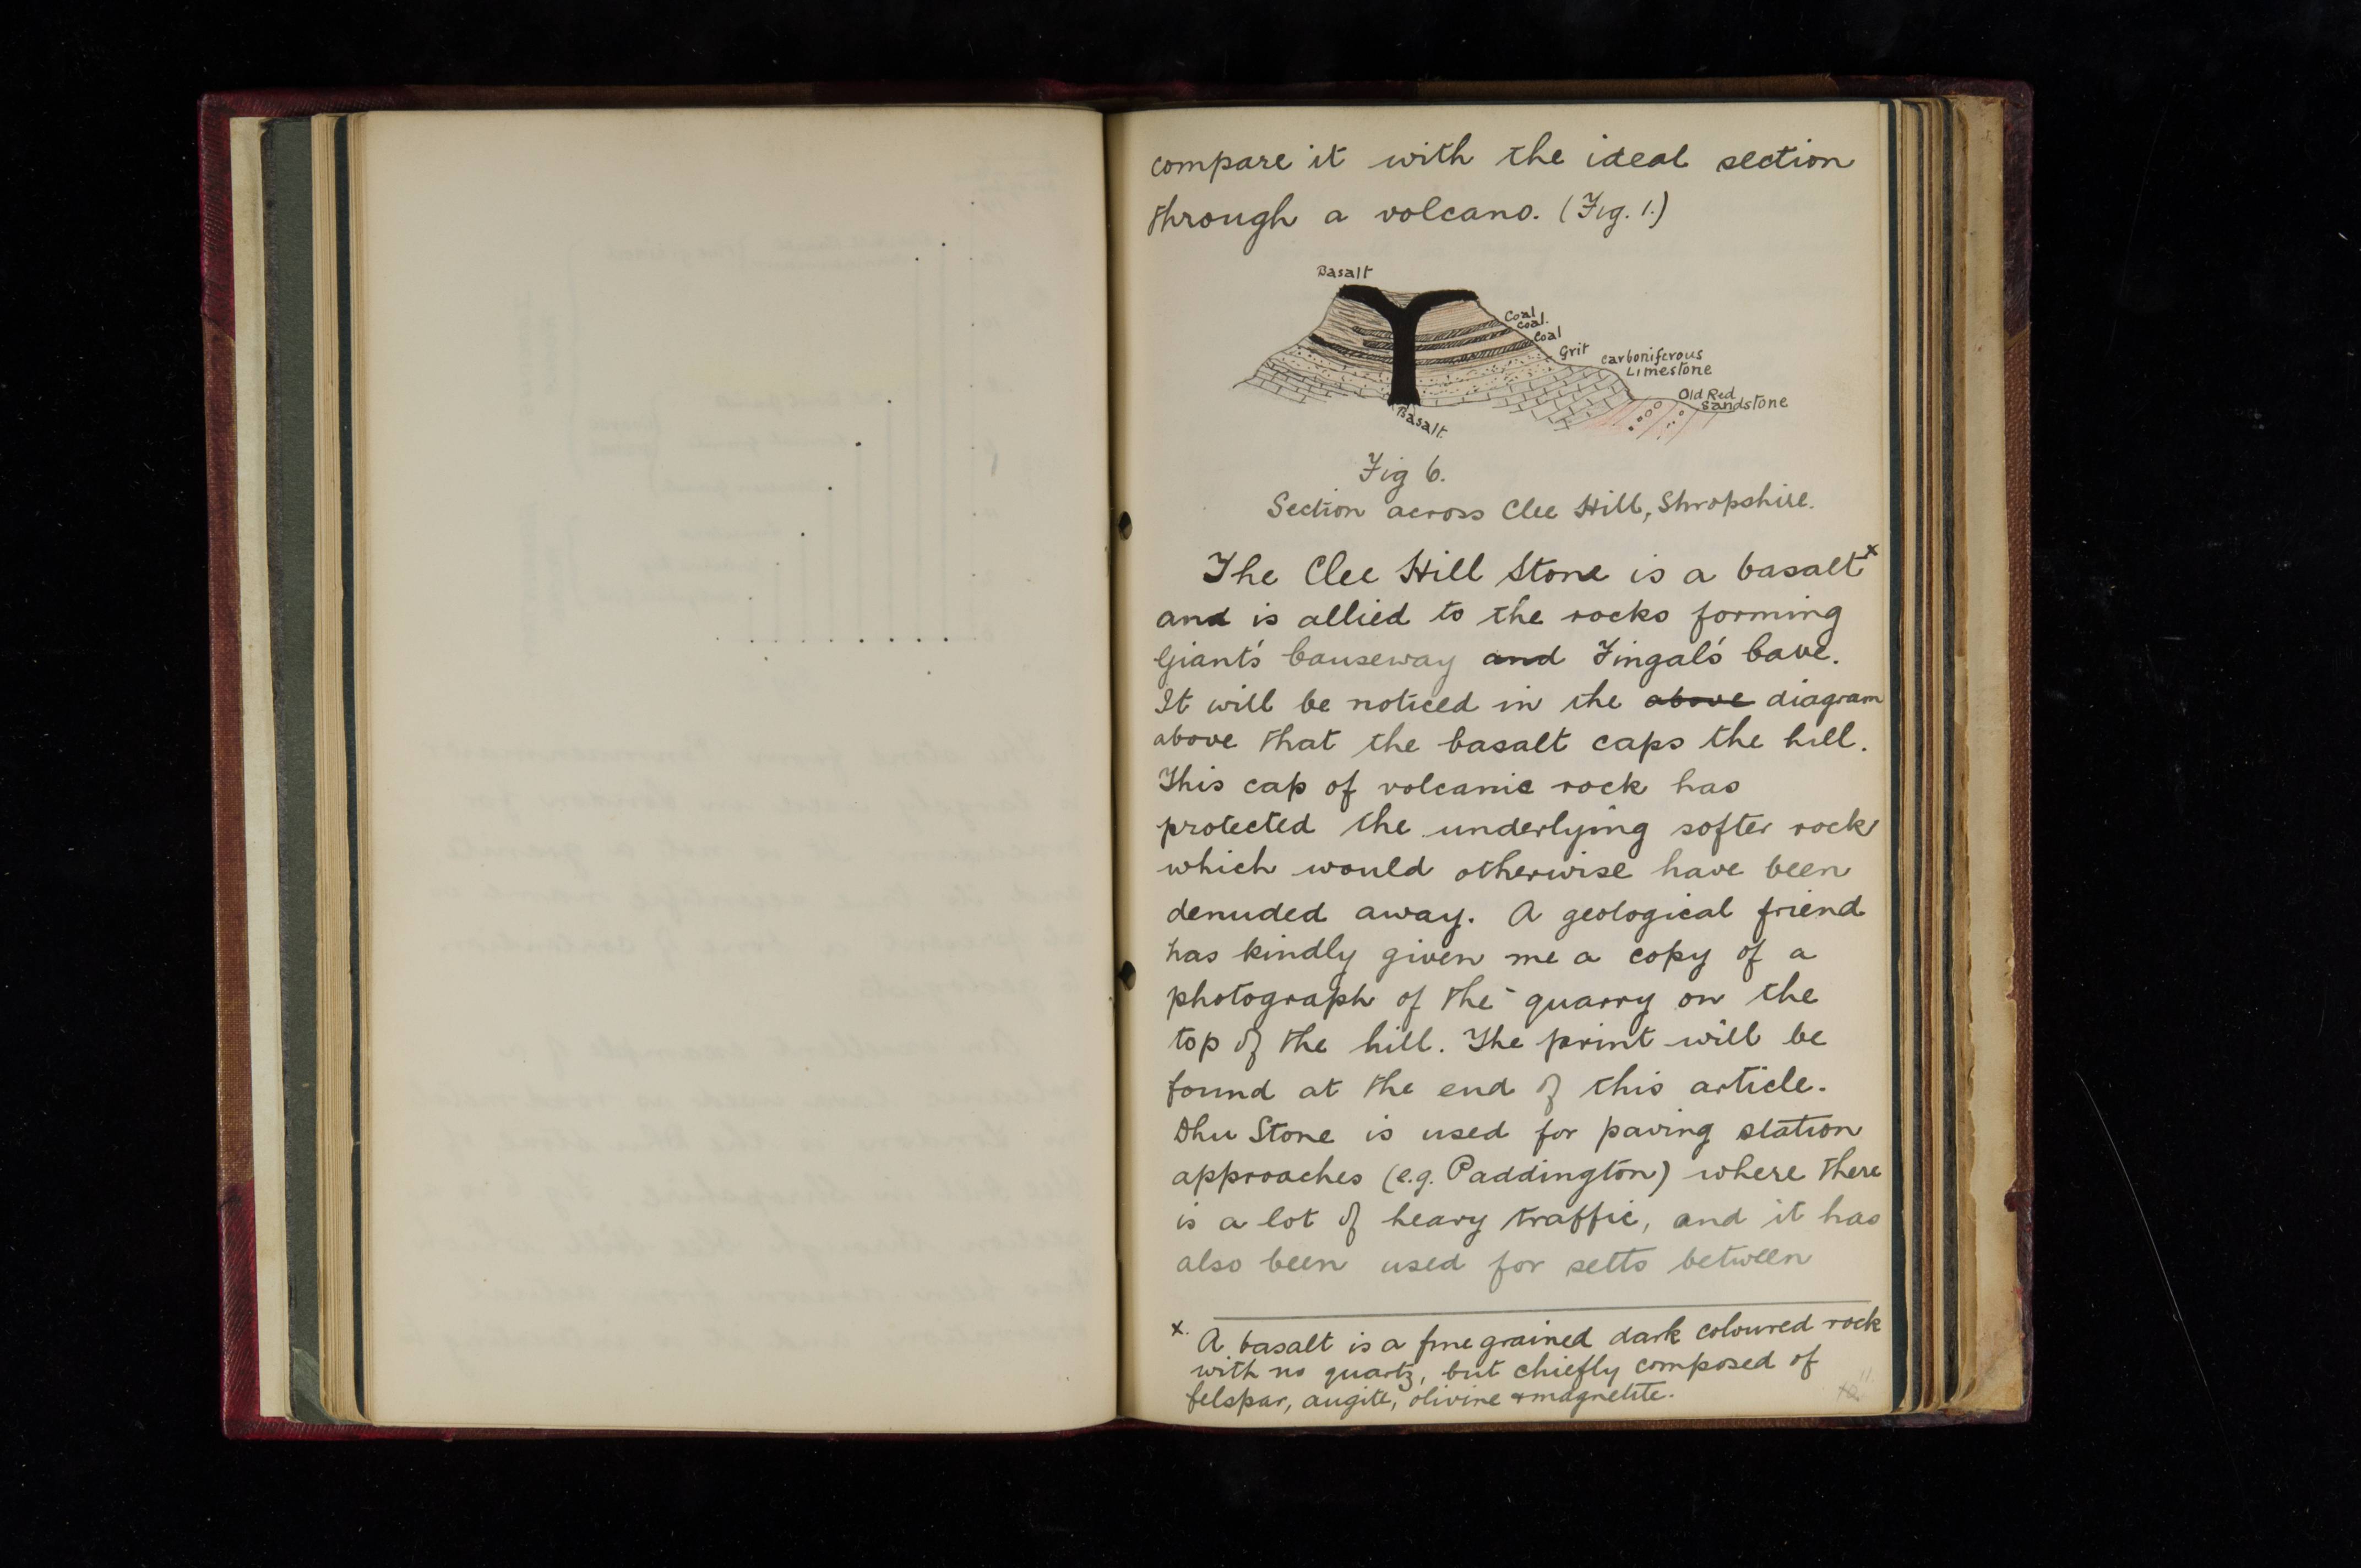 compare it with the ideal section
through a volcano. (Fig. 1.)
Basalt
Coal
Coal.
Coal
Grit
Carboniferous
Limestone
Old Red
Sandstone
Basalt.
Fig 6.
Section across Clee Hill, Shropshire.
The Clee Hill Stone is a basalt x
and is allied to the rocks forming
Giant's Causeway and Fingal's Cave.
It will be noticed in the above diagram
above that the basalt caps the hill.
This cap of volcanic rock has
protected the underlying softer rock
which would otherwise have been
denuded away. A geological friend
has kindly given me a copy of a
photograph of the quarry on the
top of the hill. The print will be
found at the end of this article.
Dhu Stone is used for paving station
approaches (e.g. Paddington) where there
is a lot of heavy traffic, and it has
also been used for setts between
x. A basalt is a fine grained dark coloured rock
with no quartz, but chiefly composed of
felspar, augite, olivine & magnetite.
11